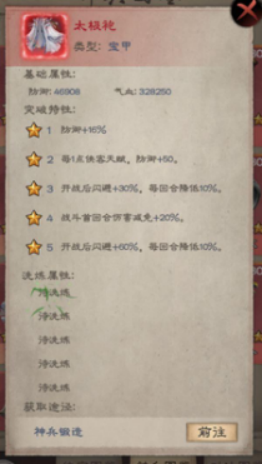 太极袍
类型：宝甲
基础属性：
防御：46908
气血：328250
突破特性：
1 防御+16%
2 每1点侠客天赋，防御+60。
3 开战后闪避+30%，每回合降低10%。
4 战斗首回合伤害减免+20%。
5 开战后闪避+60%，每回合降低10%。
洗炼属性：
待洗炼
待洗炼
待洗炼
待洗炼
待洗炼
获取途径：
神兵锻造
前往